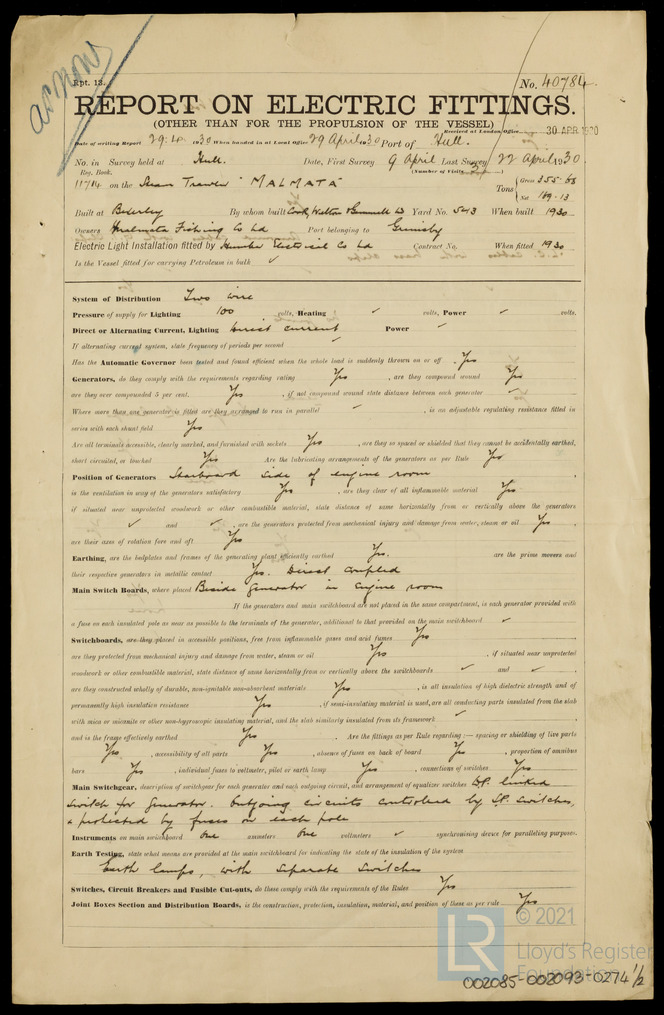 Rpt. 13.
No. 40784.
REPORT ON ELECTRIC FITTINGS.
(OTHER THAN FOR THE PROPULSION OF THE VESSEL)
Received at London Office 30 APR 1930
Date of writing Report 29.4. 1930 When handed in at Local Office 29 April 1930 Port of Hull.
No. in Survey held at Hull. Date, First Survey 9 April Last Survey 22 April 1930.
Reg. Book. (Number of Visits
on the Steam Trawler "MALMATA" Tons { Gross 355.68
Net 149.13
Built at Beverley By whom built Cook, Welton & Gemmell Ld Yard No. 543 When built 1930
Owners Malmata Fishing Co Ld Port belonging to Grimsby
Electric Light Installation fitted by Humber Electrical Co Ld Contract No. When fitted 1930
Is the Vessel fitted for carrying Petroleum in bulk ✓
System of Distribution Two wire
Pressure of supply for Lighting 100 volts, Heating ✓ volts, Power ✓ volts.
Direct or Alternating Current, Lighting Direct current Power ✓
If alternating current system, state frequency of periods per second ✓
Has the Automatic Governor been tested and found efficient when the whole load is suddenly thrown on or off. Yes
Generators, do they comply with the requirements regarding rating Yes, are they compound wound Yes
are they over compounded 5 per cent. Yes, if not compound wound state distance between each generator ✓
Where more than one generator is fitted are they arranged to run in parallel ✓, is an adjustable regulating resistance fitted in
series with each shunt field Yes
Are all terminals accessible, clearly marked, and furnished with sockets Yes, are they so spaced or shielded that they cannot be accidentally earthed,
short circuited, or touched Yes Are the lubricating arrangements of the generators as per Rule Yes
Position of Generators Starboard side of engine room
is the ventilation in way of the generators satisfactory Yes, are they clear of all inflammable material Yes
if situated near unprotected woodwork or other combustible material, state distance of same horizontally from or vertically above the generators
✓ and ✓, are the generators protected from mechanical injury and damage from water, steam or oil Yes
are their axes of rotation fore and aft Yes
Earthing, are the bedplates and frames of the generating plant efficiently earthed Yes. are the prime movers and
their respective generators in metallic contact Yes. Direct coupled
Main Switch Boards, where placed Beside generator in engine room
If the generators and main switchboard are not placed in the same compartment, is each generator provided with
a fuse on each insulated pole as near as possible to the terminals of the generator, additional to that provided on the main switchboard ✓
Switchboards, are they placed in accessible positions, free from inflammable gases and acid fumes Yes
are they protected from mechanical injury and damage from water, steam or oil Yes, if situated near unprotected
woodwork or other combustible material, state distance of same horizontally from or vertically above the switchboards ✓ and ✓
are they constructed wholly of durable, non-ignitable non-absorbent materials Yes, is all insulation of high dielectric strength and of
permanently high insulation resistance Yes, if semi-insulating material is used, are all conducting parts insulated from the slab
with mica or micanite or other non-hygroscopic insulating material, and the slab similarly insulated from its framework ✓
and is the frame effectively earthed Yes. Are the fittings as per Rule regarding :— spacing or shielding of live parts
Yes, accessibility of all parts Yes, absence of fuses on back of board Yes, proportion of omnibus
bars Yes, individual fuses to voltmeter, pilot or earth lamp Yes, connections of switches Yes
Main Switchgear, description of switchgear for each generator and each outgoing circuit, and arrangement of equalizer switches D.P. linked
switch for generator. Outgoing circuits controlled by S.P. switches
& protected by fuses on each pole
Instruments on main switchboard One ammeters One voltmeters ✓ synchronising device for paralleling purposes.
Earth Testing, state what means are provided at the main switchboard for indicating the state of the insulation of the system
Earth lamps, with separate switches
Switches, Circuit Breakers and Fusible Cut-outs, do these comply with the requirements of the Rules Yes
Joint Boxes Section and Distribution Boards, is the construction, protection, insulation, material, and position of these as per rule Yes
LR
© 2021
Lloyd's Register
Foundation
002085-002093-0274 1/2